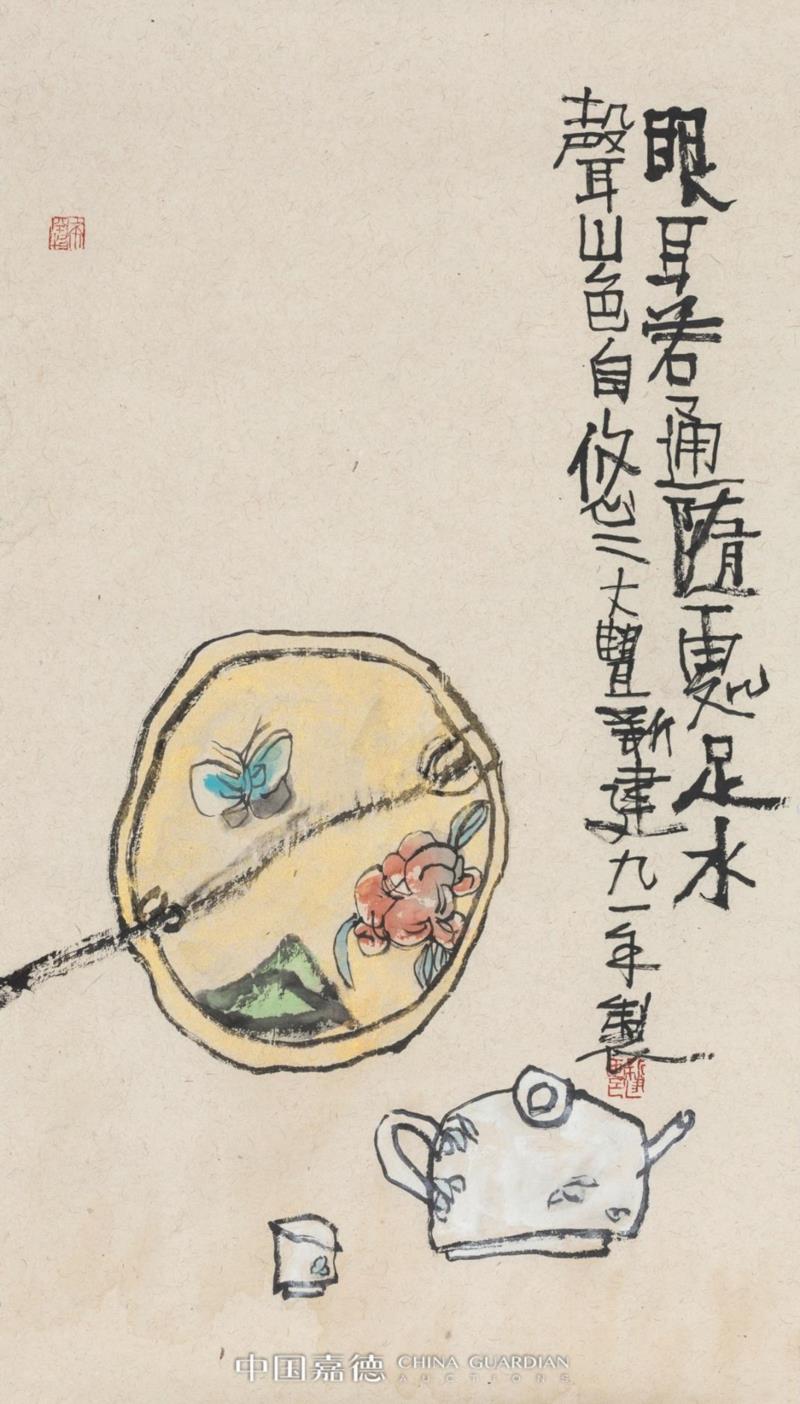 眼耳若通隨處足水
聲山色自悠〻大豐新建九一年製
中国嘉德 CHINA GUARDIAN
AUCTIONS